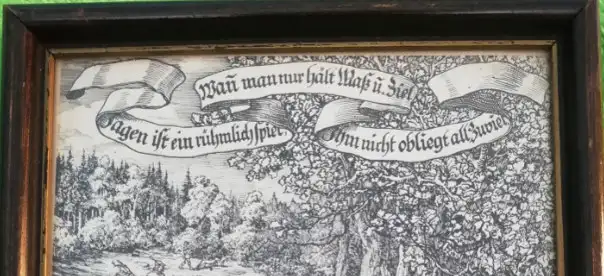 Wañ man nur hält Maß u. Ziel
Jagen ist ein rühmlich spiel
Ihm nicht obliegt all Zuviel